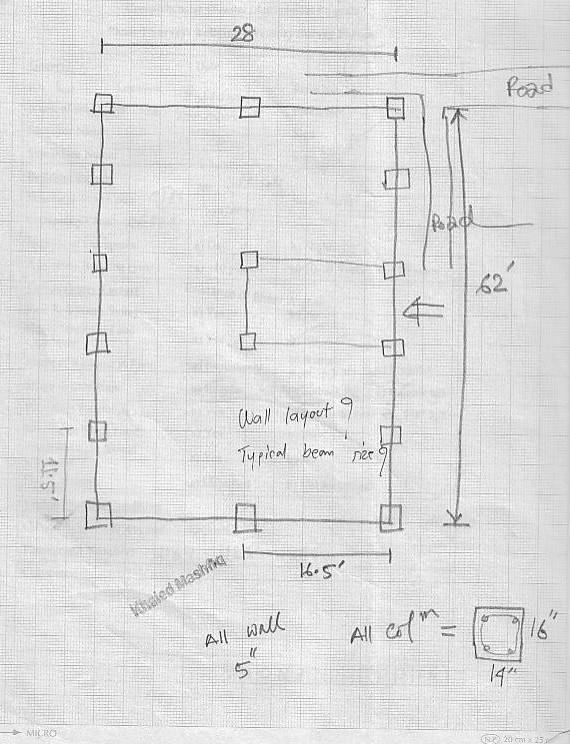 28
Road
Road
62'
Wall layout ?
Typical beam size ?
11.5'
16.5'
Khaled Mashfiq
All wall
5"
All colᵐ =
16"
14"
MICRO
20 cm x 25